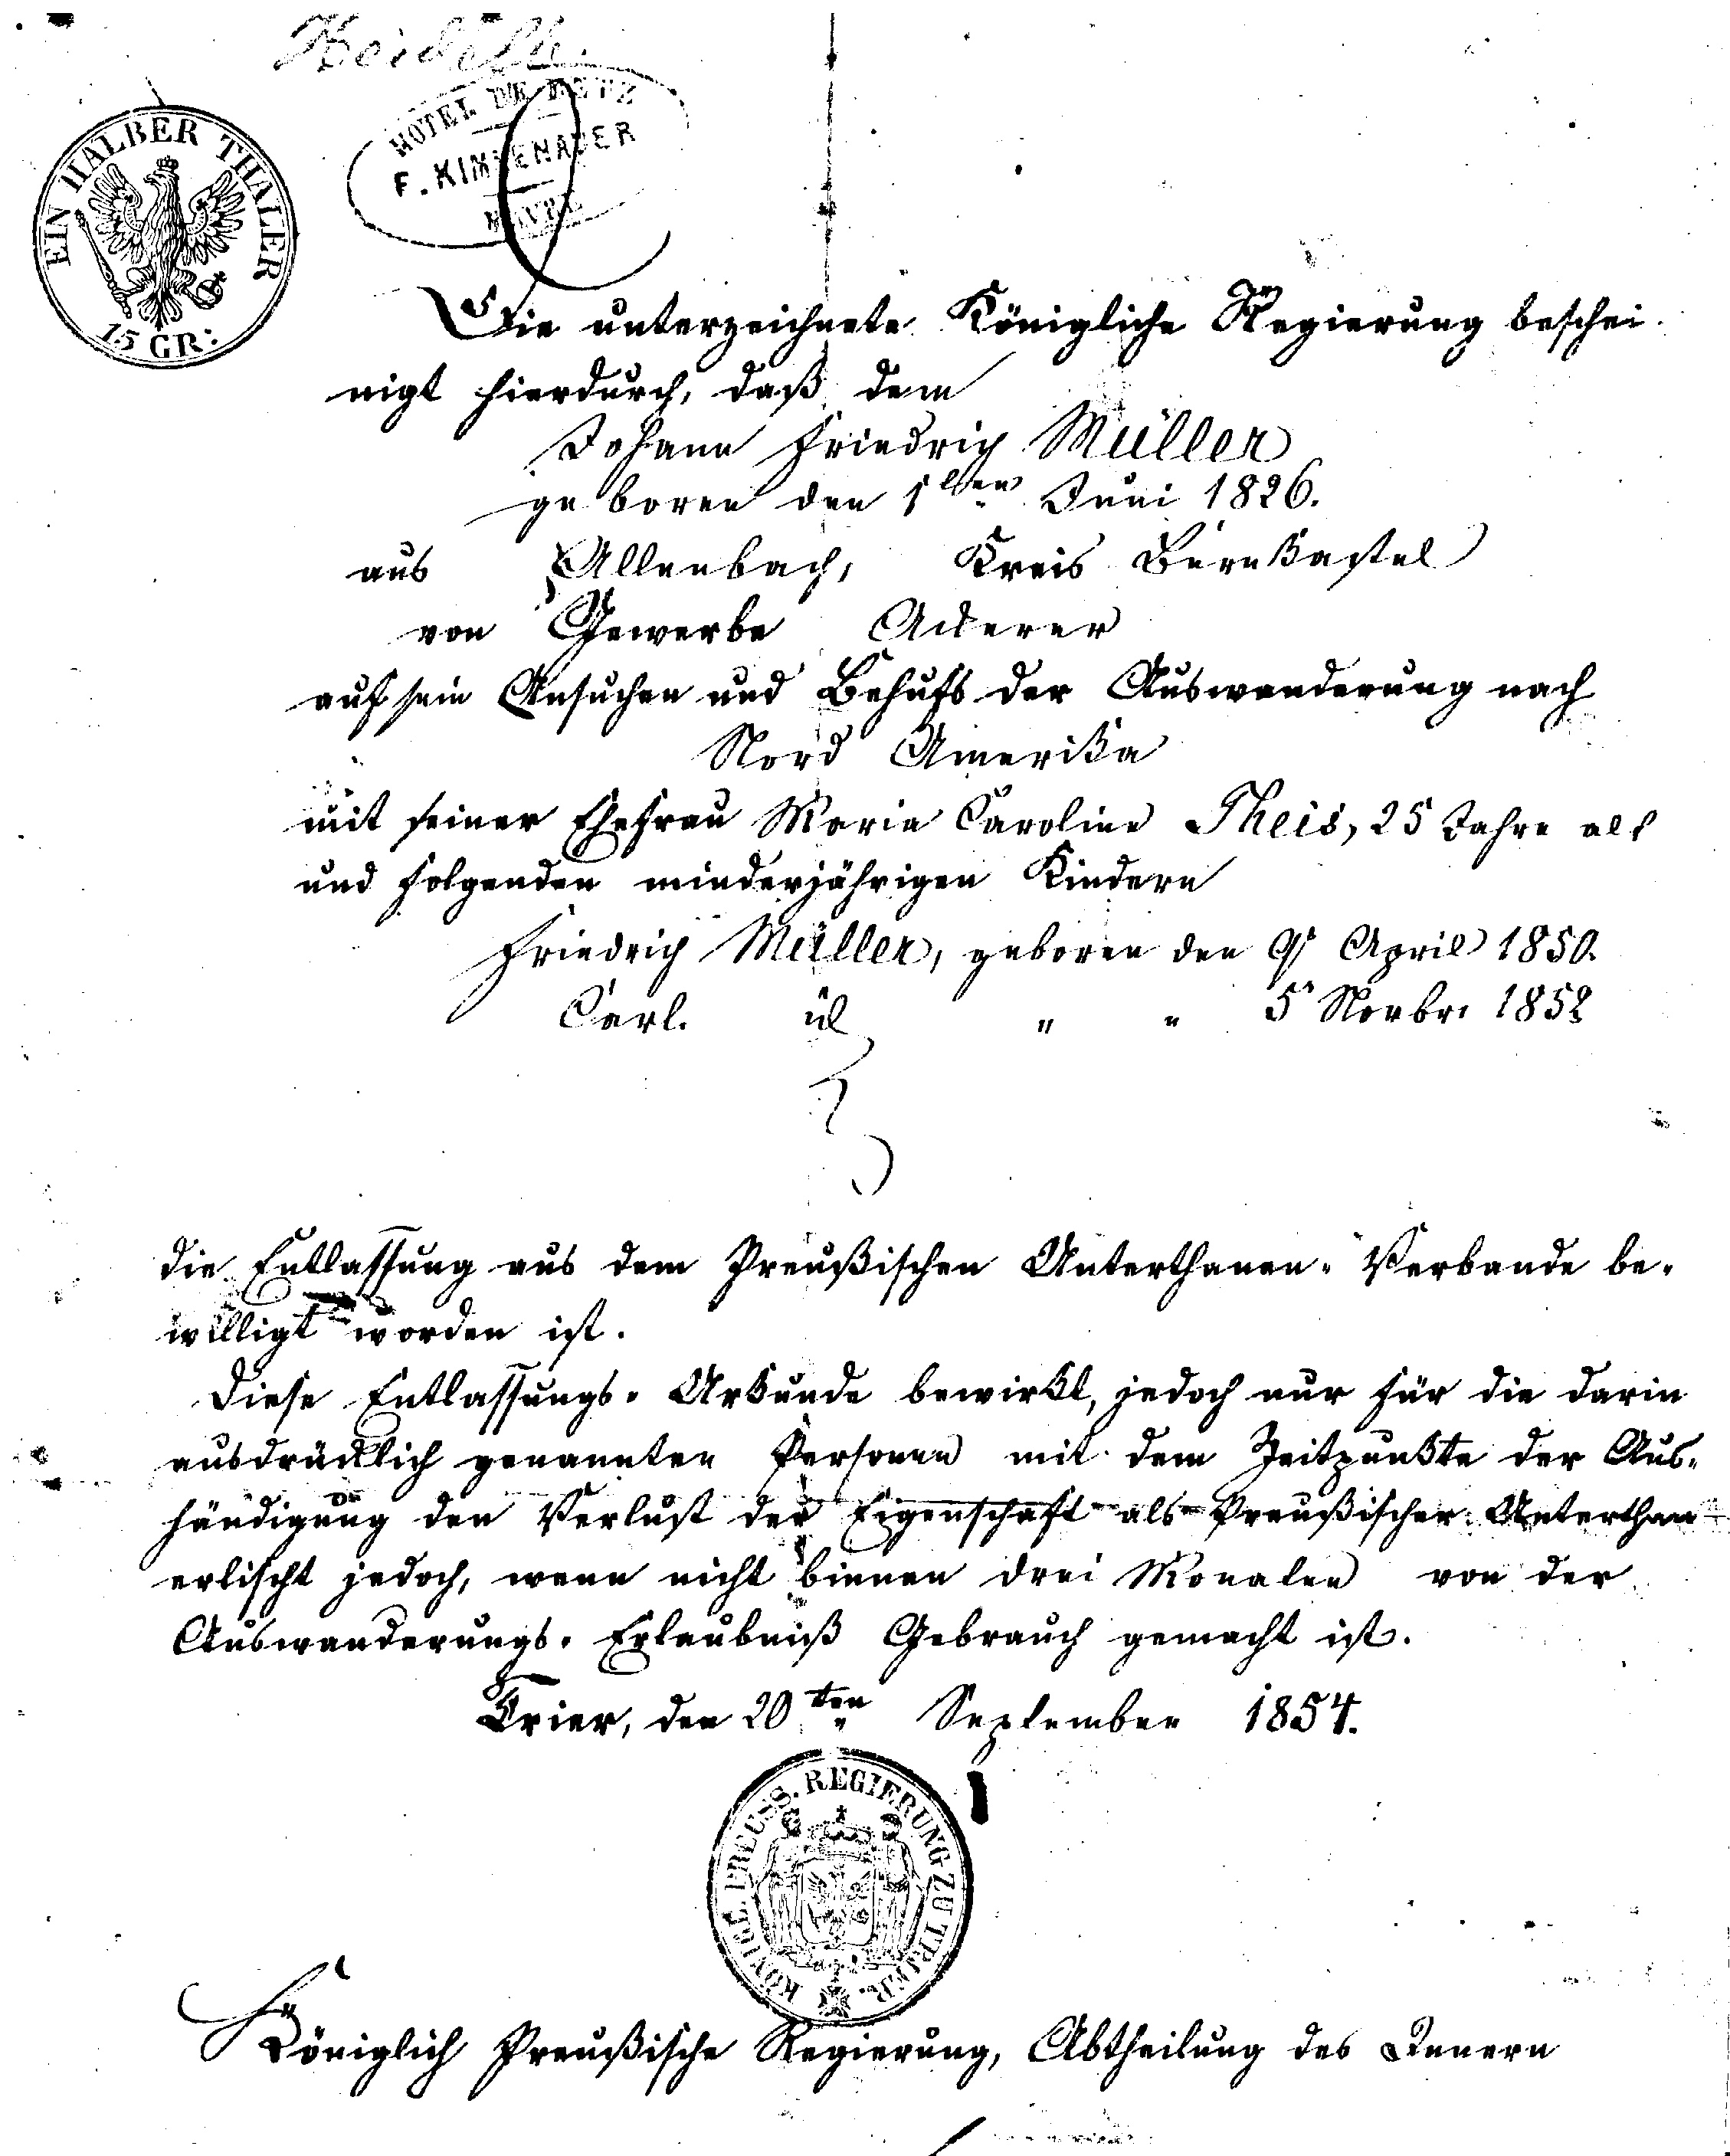 EIN HALBER THALER
15 GR:
HOTEL DE METZ
F.
Die unterzeichnete Königliche Regierung beschei-
nigt hierdurch, daß dem
Johann Friedrich Müller
geboren den 1ten Juni 1826.
aus Allenbach, Kreis Bernkastel
von Gewerbe Ackerer
auf sein Ansuchen und Behufs der Auswanderung nach
Nord Amerika
mit seiner Ehefrau Maria Caroline Theis, 25 Jahre alt
und folgenden minderjährigen Kindern
Friedrich Müller, geboren den 9 April 1850.
Carl. " " 5 Novbr. 1852
die Entlassung aus dem Preußischen Unterthanen-Verbande be-
willigt worden ist.
Diese Entlassungs-Urkunde bewirkt, jedoch nur für die darin
ausdrücklich genannten Personen mit dem Zeitpunkte der Aus-
händigung den Verlust der Eigenschaft als Preußischer Unterthan
erlischt jedoch, wenn nicht binnen drei Monaten von der
Auswanderungs-Erlaubniß Gebrauch gemacht ist.
Trier, den 20ten September 1854.
KÖNIGL. PREUSS. REGIERUNG ZU TRIER.
Königlich Preußische Regierung, Abtheilung des Innern